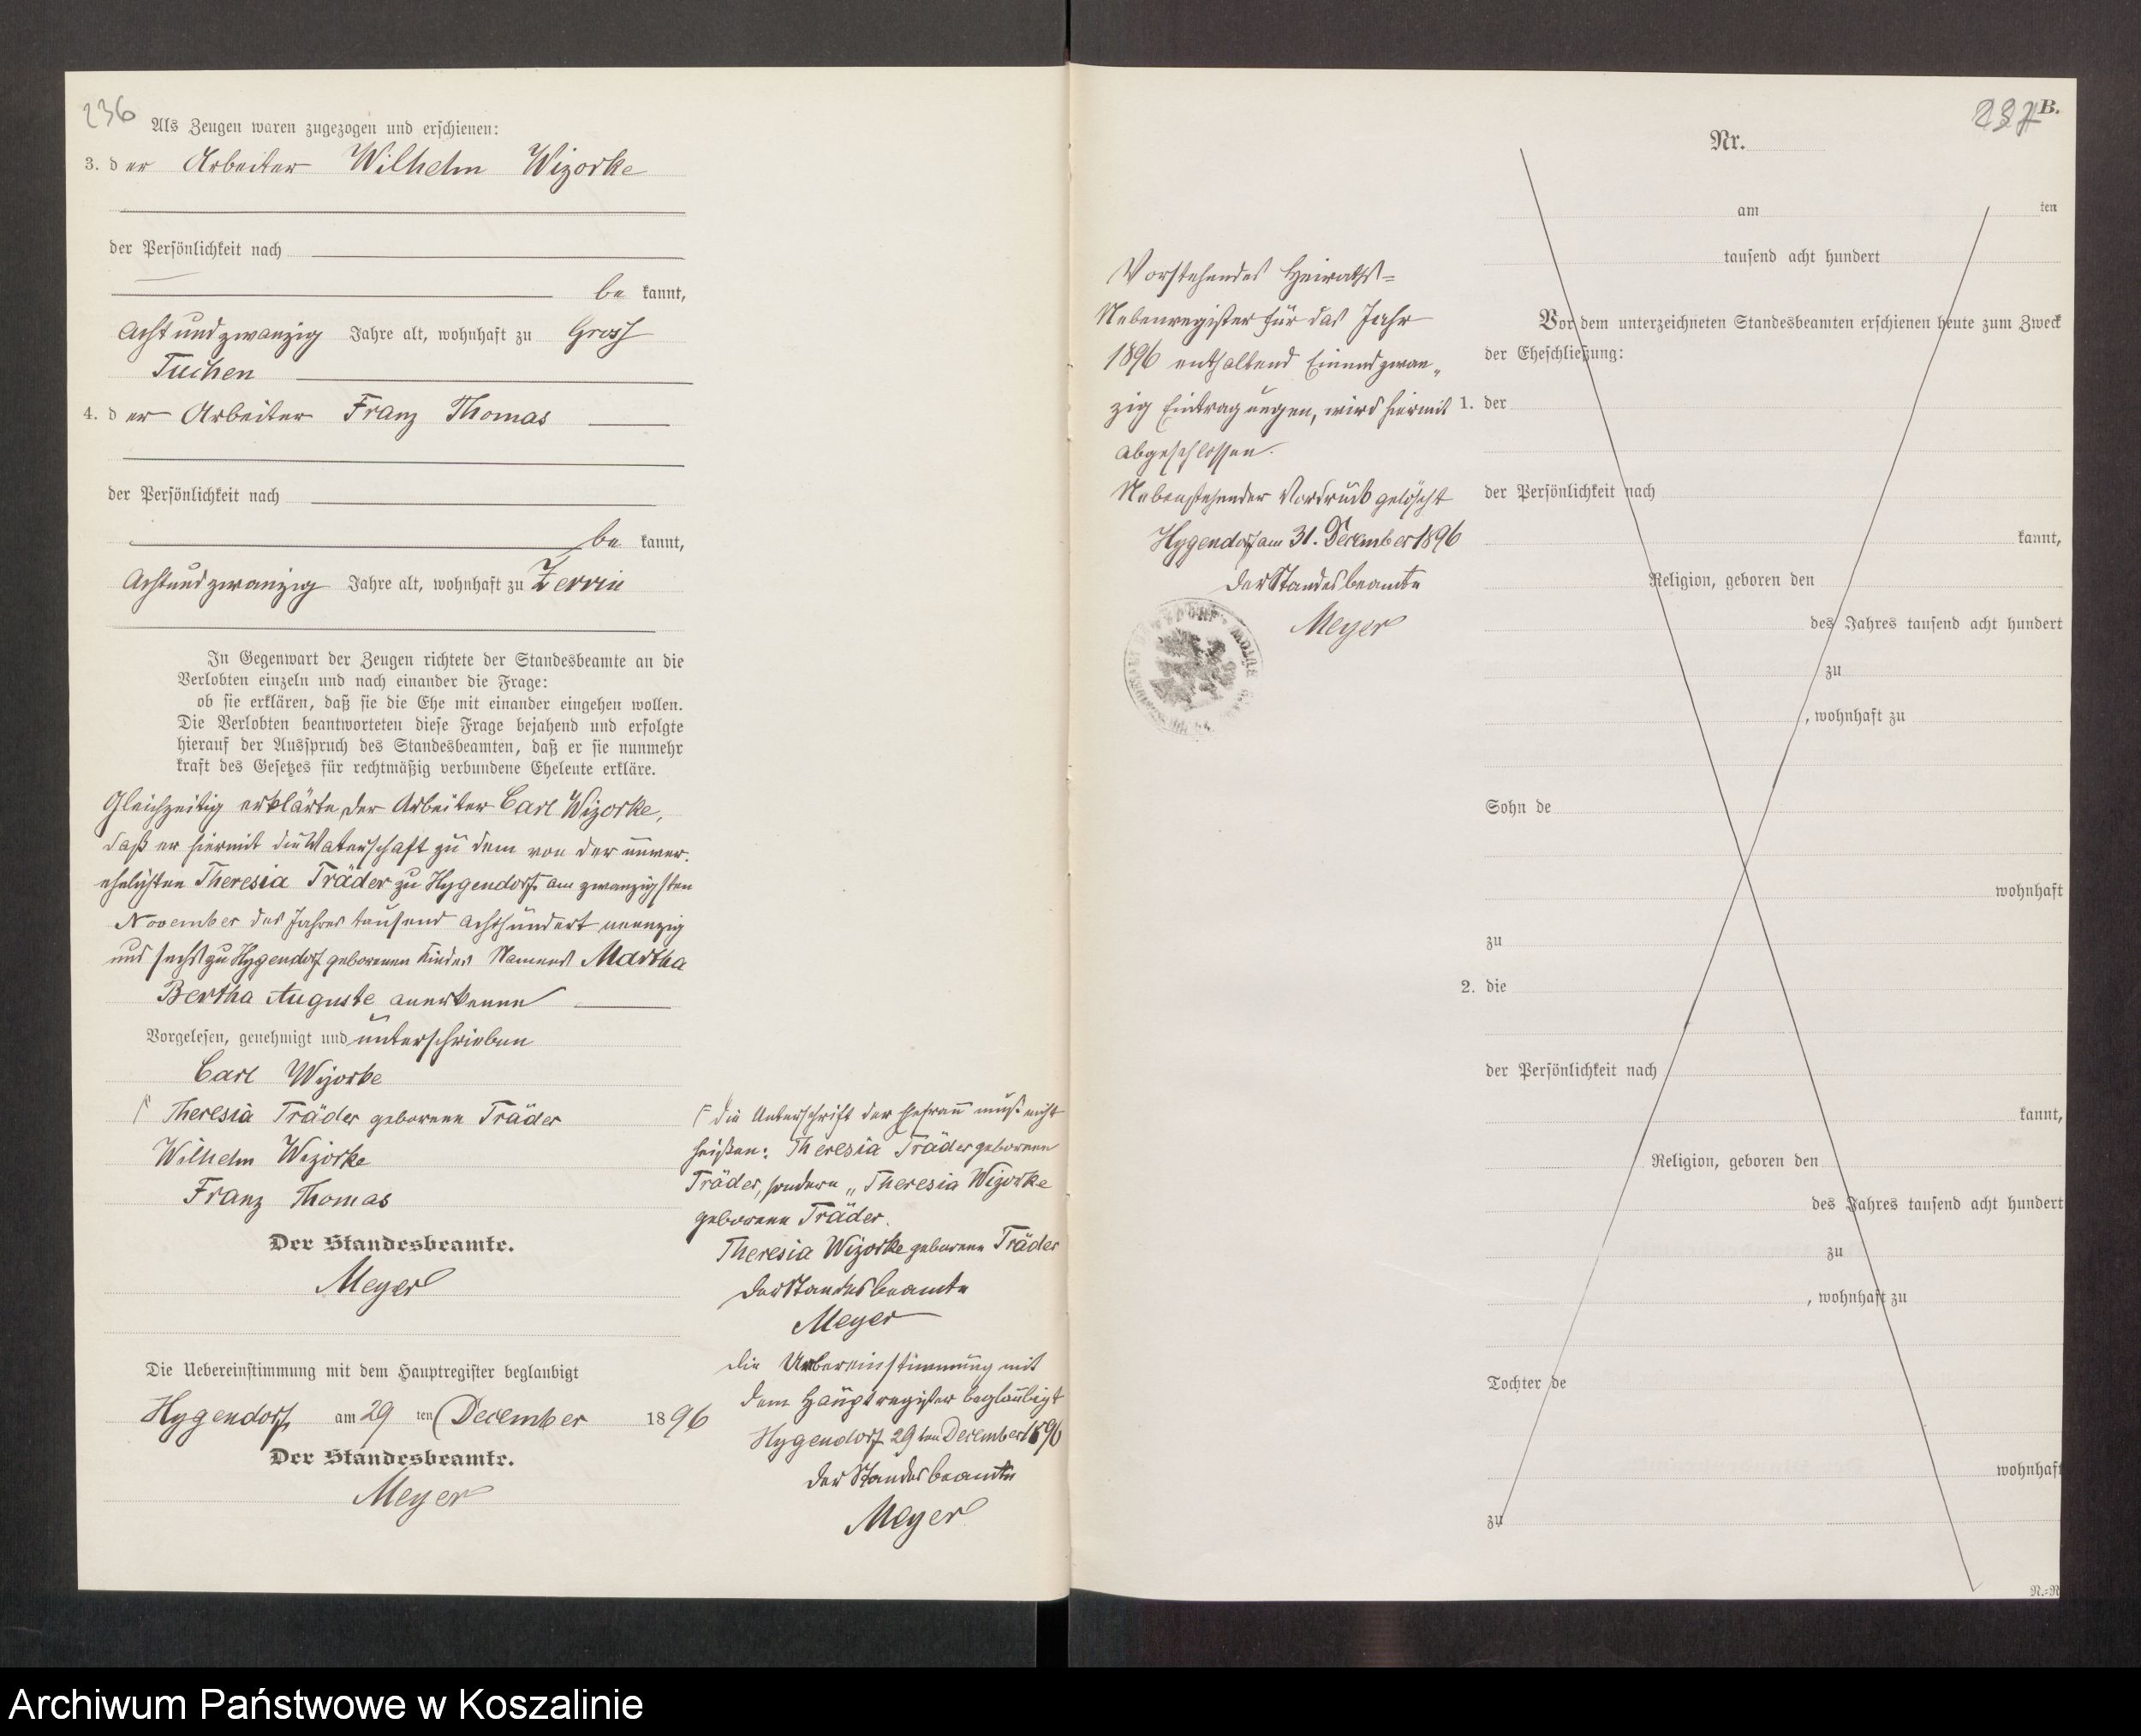 236
Als Zeugen waren zugezogen und erschienen:
3. der Arbeiter Wilhelm Wizorke
der Persönlichkeit nach
be kannt,
Achtundzwanzig Jahre alt, wohnhaft zu Gross
Tuchen
4. der Arbeiter Franz Thomas
der Persönlichkeit nach
be kannt,
Achtundzwanzig Jahre alt, wohnhaft zu Zerrin
In Gegenwart der Zeugen richtete der Standesbeamte an die
Verlobten einzeln und nach einander die Frage:
ob sie erklären, daß sie die Ehe mit einander eingehen wollen.
Die Verlobten beantworteten diese Frage bejahend und erfolgte
hierauf der Ausspruch des Standesbeamten, daß er sie nunmehr
kraft des Gesetzes für rechtmäßig verbundene Eheleute erkläre.
Gleichzeitig erklärte der Arbeiter Carl Wizorke,
daß er hiermit die Vaterschaft zu dem von der unver-
ehelichten Theresia Träder zu Hygendorf am zwanzigsten
November des Jahres tausend achthundert neunzig
und sechs zu Hygendorf geborenen Kindes Namens Martha
Bertha Auguste anerkenne
Vorgelesen, genehmigt und unterschrieben
Carl Wizorke
Theresia Träder geborene Träder
Wilhelm Wizorke
Franz Thomas
Der Standesbeamte.
Meyer
Die Uebereinstimmung mit dem Hauptregister beglaubigt
Hygendorf am 29 ten December 1896
Der Standesbeamte.
Meyer
die Unterschrift der Ehefrau muß nicht
heißen: Theresia Träder geborene
Träder, sondern „Theresia Wizorke
geborene Träder.
Theresia Wizorke geborene Träder
der Standesbeamte
Meyer
die Uebereinstimmung mit
dem Hauptregister beglaubigt
Hygendorf 29ten December 1896
der Standesbeamte
Meyer
Vorstehendes Heiraths-
Nebenregister für das Jahr
1896 enthaltend Einundzwan-
zig Eintragungen, wird hiermit
abgeschlossen.
Nebenstehender Vordruck gelöscht
Hygendorf am 31. December 1896
der Standesbeamte
Meyer
237 B.
Nr.
am ten
tausend acht hundert
Vor dem unterzeichneten Standesbeamten erschienen heute zum Zweck
der Eheschließung:
1. der
der Persönlichkeit nach
kannt,
Religion, geboren den
des Jahres tausend acht hundert
zu
, wohnhaft zu
Sohn de
wohnhaft
zu
2. die
der Persönlichkeit nach
kannt,
Religion, geboren den
des Jahres tausend acht hundert
zu
, wohnhaft zu
Tochter de
wohnhaft
zu
Archiwum Państwowe w Koszalinie